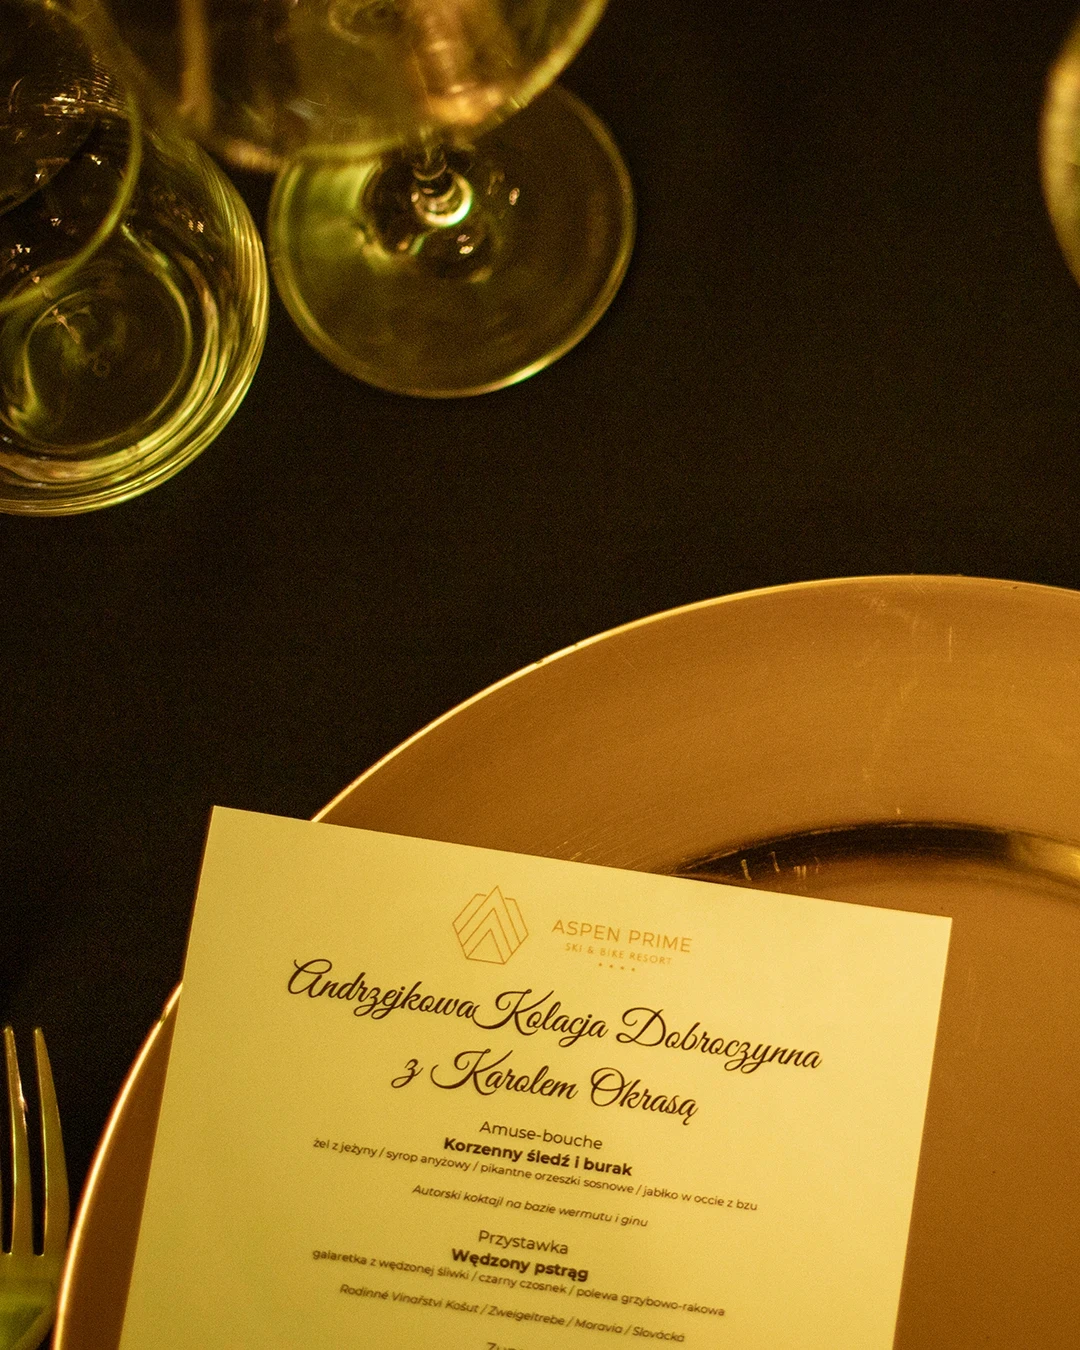 ASPEN PRIME
SKI & BIKE RESORT
Andrzejkowa Kolacja Dobroczynna
z Karolem Okrasą
Amuse-bouche
Korzenny śledź i burak
żel z jeżyny / syrop anyżowy / pikantne orzeszki sosnowe / jabłko w occie z bzu
Autorski koktajl na bazie wermutu i ginu
Przystawka
Wędzony pstrąg
galaretka z wędzonej śliwki / czarny czosnek / polewa grzybowo-rakowa
Rodinné Vinařství Košut / Zweigeltrebe / Moravia / Slovácká